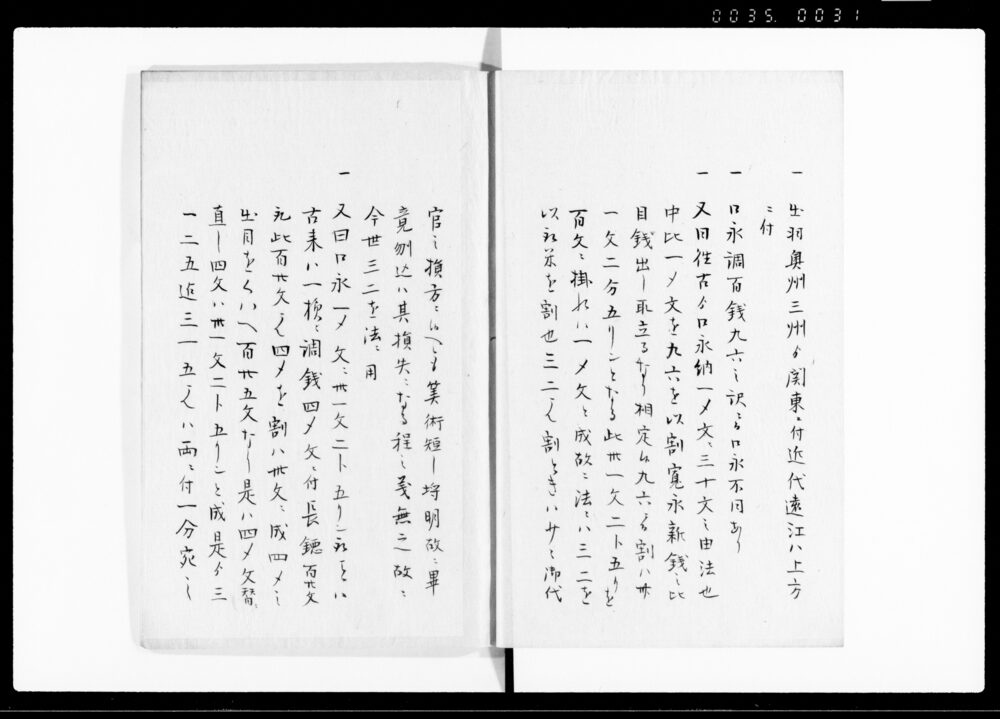 0035. 0031
一 出羽奥州三州ゟ関東ニ付近代遠江ハ上方
ニ付
一 口永調百銭九六之訳ニゟ口永不同あり
一 又曰往古ゟ口永納一メ文ニ三十文之由法也
中比一メ文を九六を以割寛永新銭ニ比
目銭出し取立るなり相定候九六ゟ割ハ卅
一文二分五りんとなる此卅一文二ト五りを
百文ニ掛れハ一メ文と成故ニ法ニハ三二を
以永不を割也三二ニて割ときハ御代
官之損方ニ候へとも算術短し埒明故ニ畢
竟刎込ハ其損失ニなる程之義無之故ニ
今世三二を法ニ用
一 又曰口永一メ文ニ卅一文二ト五りん永をハ
古来ハ一検ニ調銭四メ文ニ付長鐚百廿文
元此百廿文にて四メを割ハ卅文ニ成四メニ
出目をくハへ百廿五文なり是ハ四メ文替ニ
直し四文ハ卅一文二ト五りんと成是ゟ三
一二五迄三一五にてハ両ニ付一分宛之